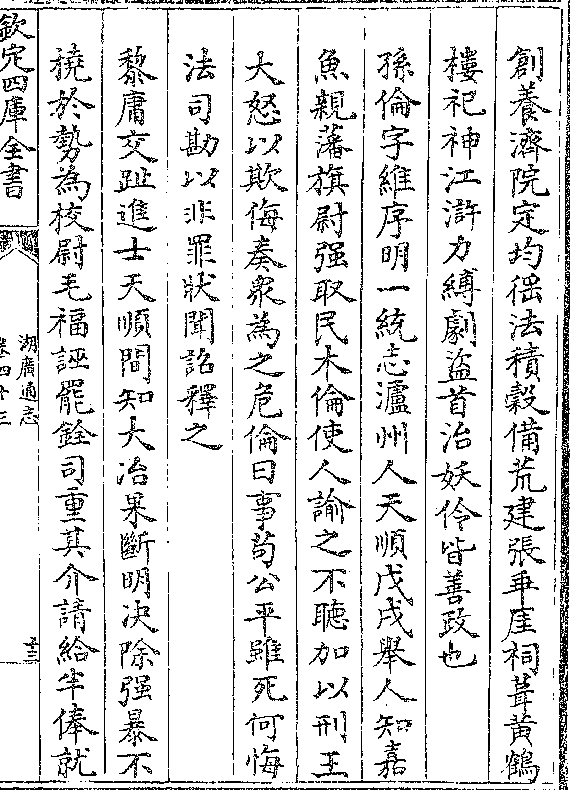 創養濟院定均徭法積穀備荒建張乖崖祠葺黄鶴
樓祀神江滸力縛劇盗首治妖伶皆善政也
孫倫字維序明一統志瀘州人天順戊戌舉人知嘉
魚親藩旗尉强取民木倫使人諭之不聽加以刑王
大怒以欺侮奏衆為之危倫曰事苟公平雖死何悔
法司勘以非罪狀聞詔釋之
黎庸交趾進士天順間知大冶果斷明决除强暴不
撓於勢為校尉毛福誣罷銓司重其介請給半俸就
欽定四庫全書
湖廣通志
卷四十三